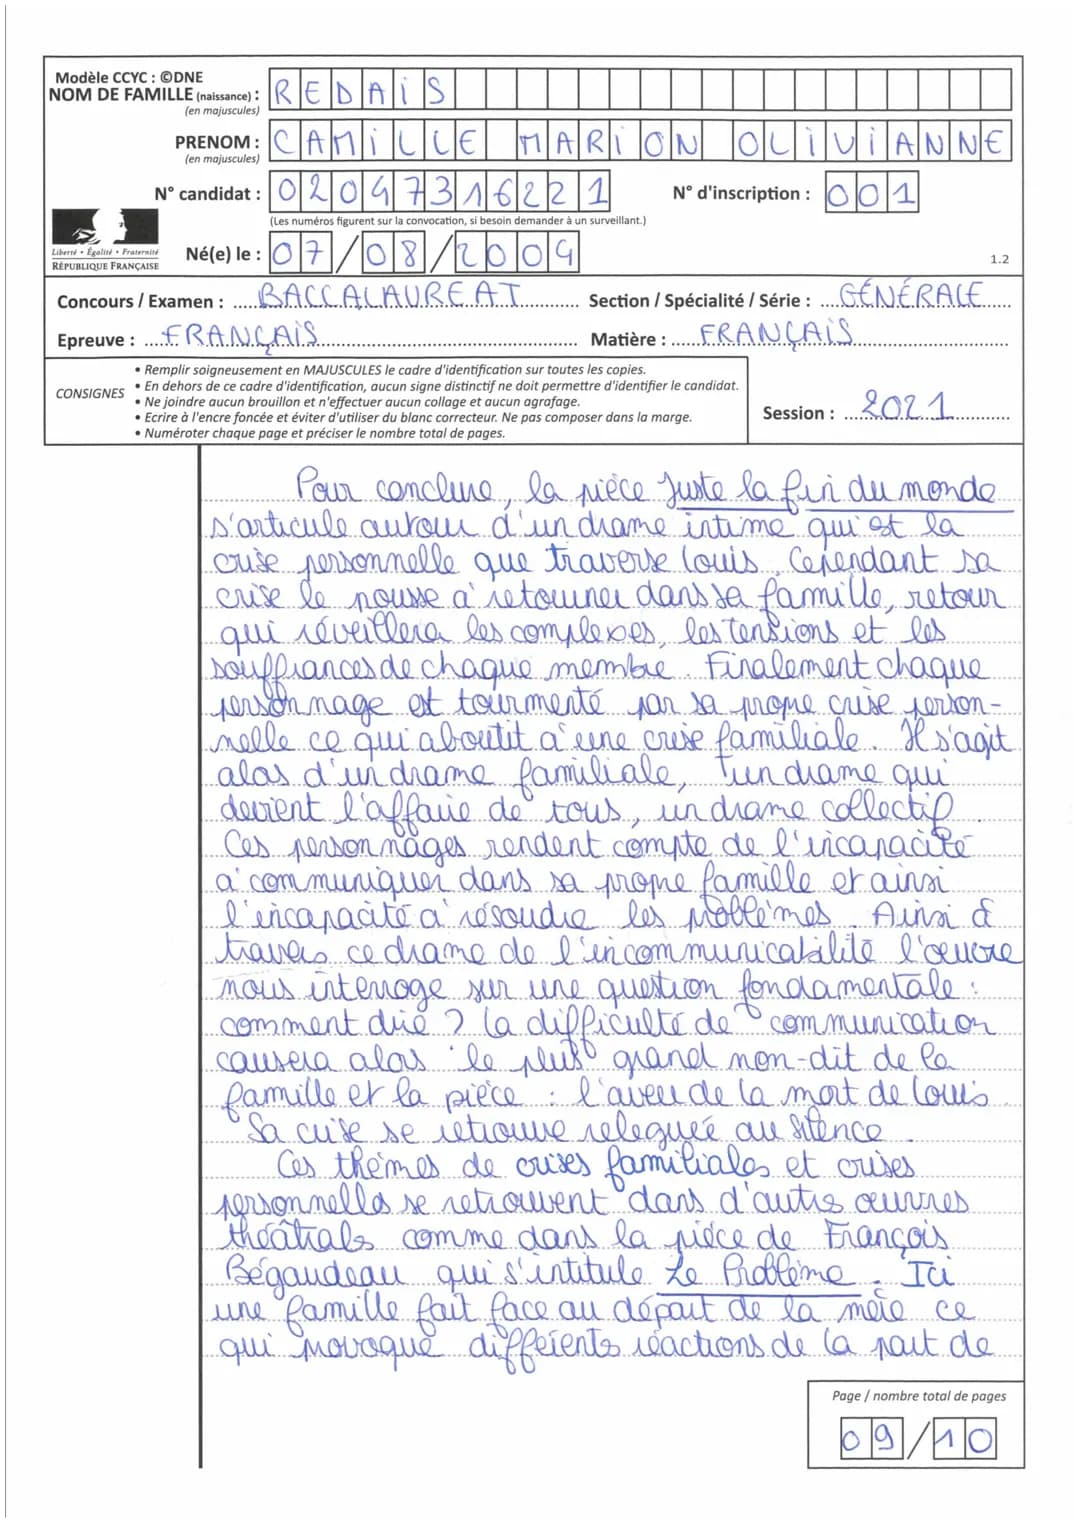 Modèle CCYC : ©DNE
NOM DE FAMILLE (naissance) : REDAIS
(en majuscules)
PRENOM : CAMILLE MARION OLIVIANNE
(en majuscules)
N° candidat : 02047316221 N° d'inscription : 001
(Les numéros figurent sur la convocation, si besoin demander à un surveillant.)
Liberté • Égalité • Fraternité
RÉPUBLIQUE FRANÇAISE
Né(e) le : 07/08/2004
1.2
Concours / Examen : BACCALAUREAT Section / Spécialité / Série : GÉNÉRALE
Epreuve : FRANÇAIS Matière : FRANÇAIS
CONSIGNES
• Remplir soigneusement en MAJUSCULES le cadre d'identification sur toutes les copies.
• En dehors de ce cadre d'identification, aucun signe distinctif ne doit permettre d'identifier le candidat.
• Ne joindre aucun brouillon et n'effectuer aucun collage et aucun agrafage.
• Ecrire à l'encre foncée et éviter d'utiliser du blanc correcteur. Ne pas composer dans la marge.
• Numéroter chaque page et préciser le nombre total de pages.
Session : 2021
Pour conclure, la pièce Juste la fin du monde
s'articule autour d'un drame intime qui est la
crise personnelle que traverse Louis. Cependant sa
crise le pousse à retourner dans sa famille, retour
qui réveillera les complexes, les tensions et les
souffrances de chaque membre. Finalement chaque
personnage est tourmenté par sa propre crise person-
nelle ce qui aboutit à une crise familiale. Il s'agit
alors d'un drame familiale, un drame qui
devient l'affaire de tous, un drame collectif.
Ces personnages rendent compte de l'incapacité
à communiquer dans sa propre famille et ainsi
l'incapacité à résoudre les problèmes. Ainsi à
travers ce drame de l'incommunicabilité l'œuvre
nous interroge sur une question fondamentale :
comment dire ? La difficulté de communication
causera alors le plus grand non-dit de la
famille et la pièce : l'aveu de la mort de Louis.
Sa crise se retrouve releguée au silence.
Ces thèmes de crises familiales et crises
personnelles se retrouvent dans d'autres œuvres
théâtrales comme dans la pièce de François
Bégaudeau qui s'intitule Le Problème. Ici
une famille fait face au départ de la mère ce
qui provoque différents réactions de la part de
Page / nombre total de pages
09/10